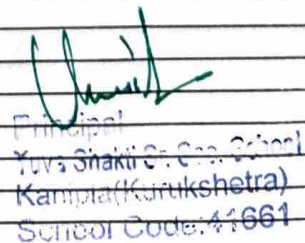 Principal
Yuva Shakti Sr. Sec. School
Kanipla(Kurukshetra)
School Code:41661